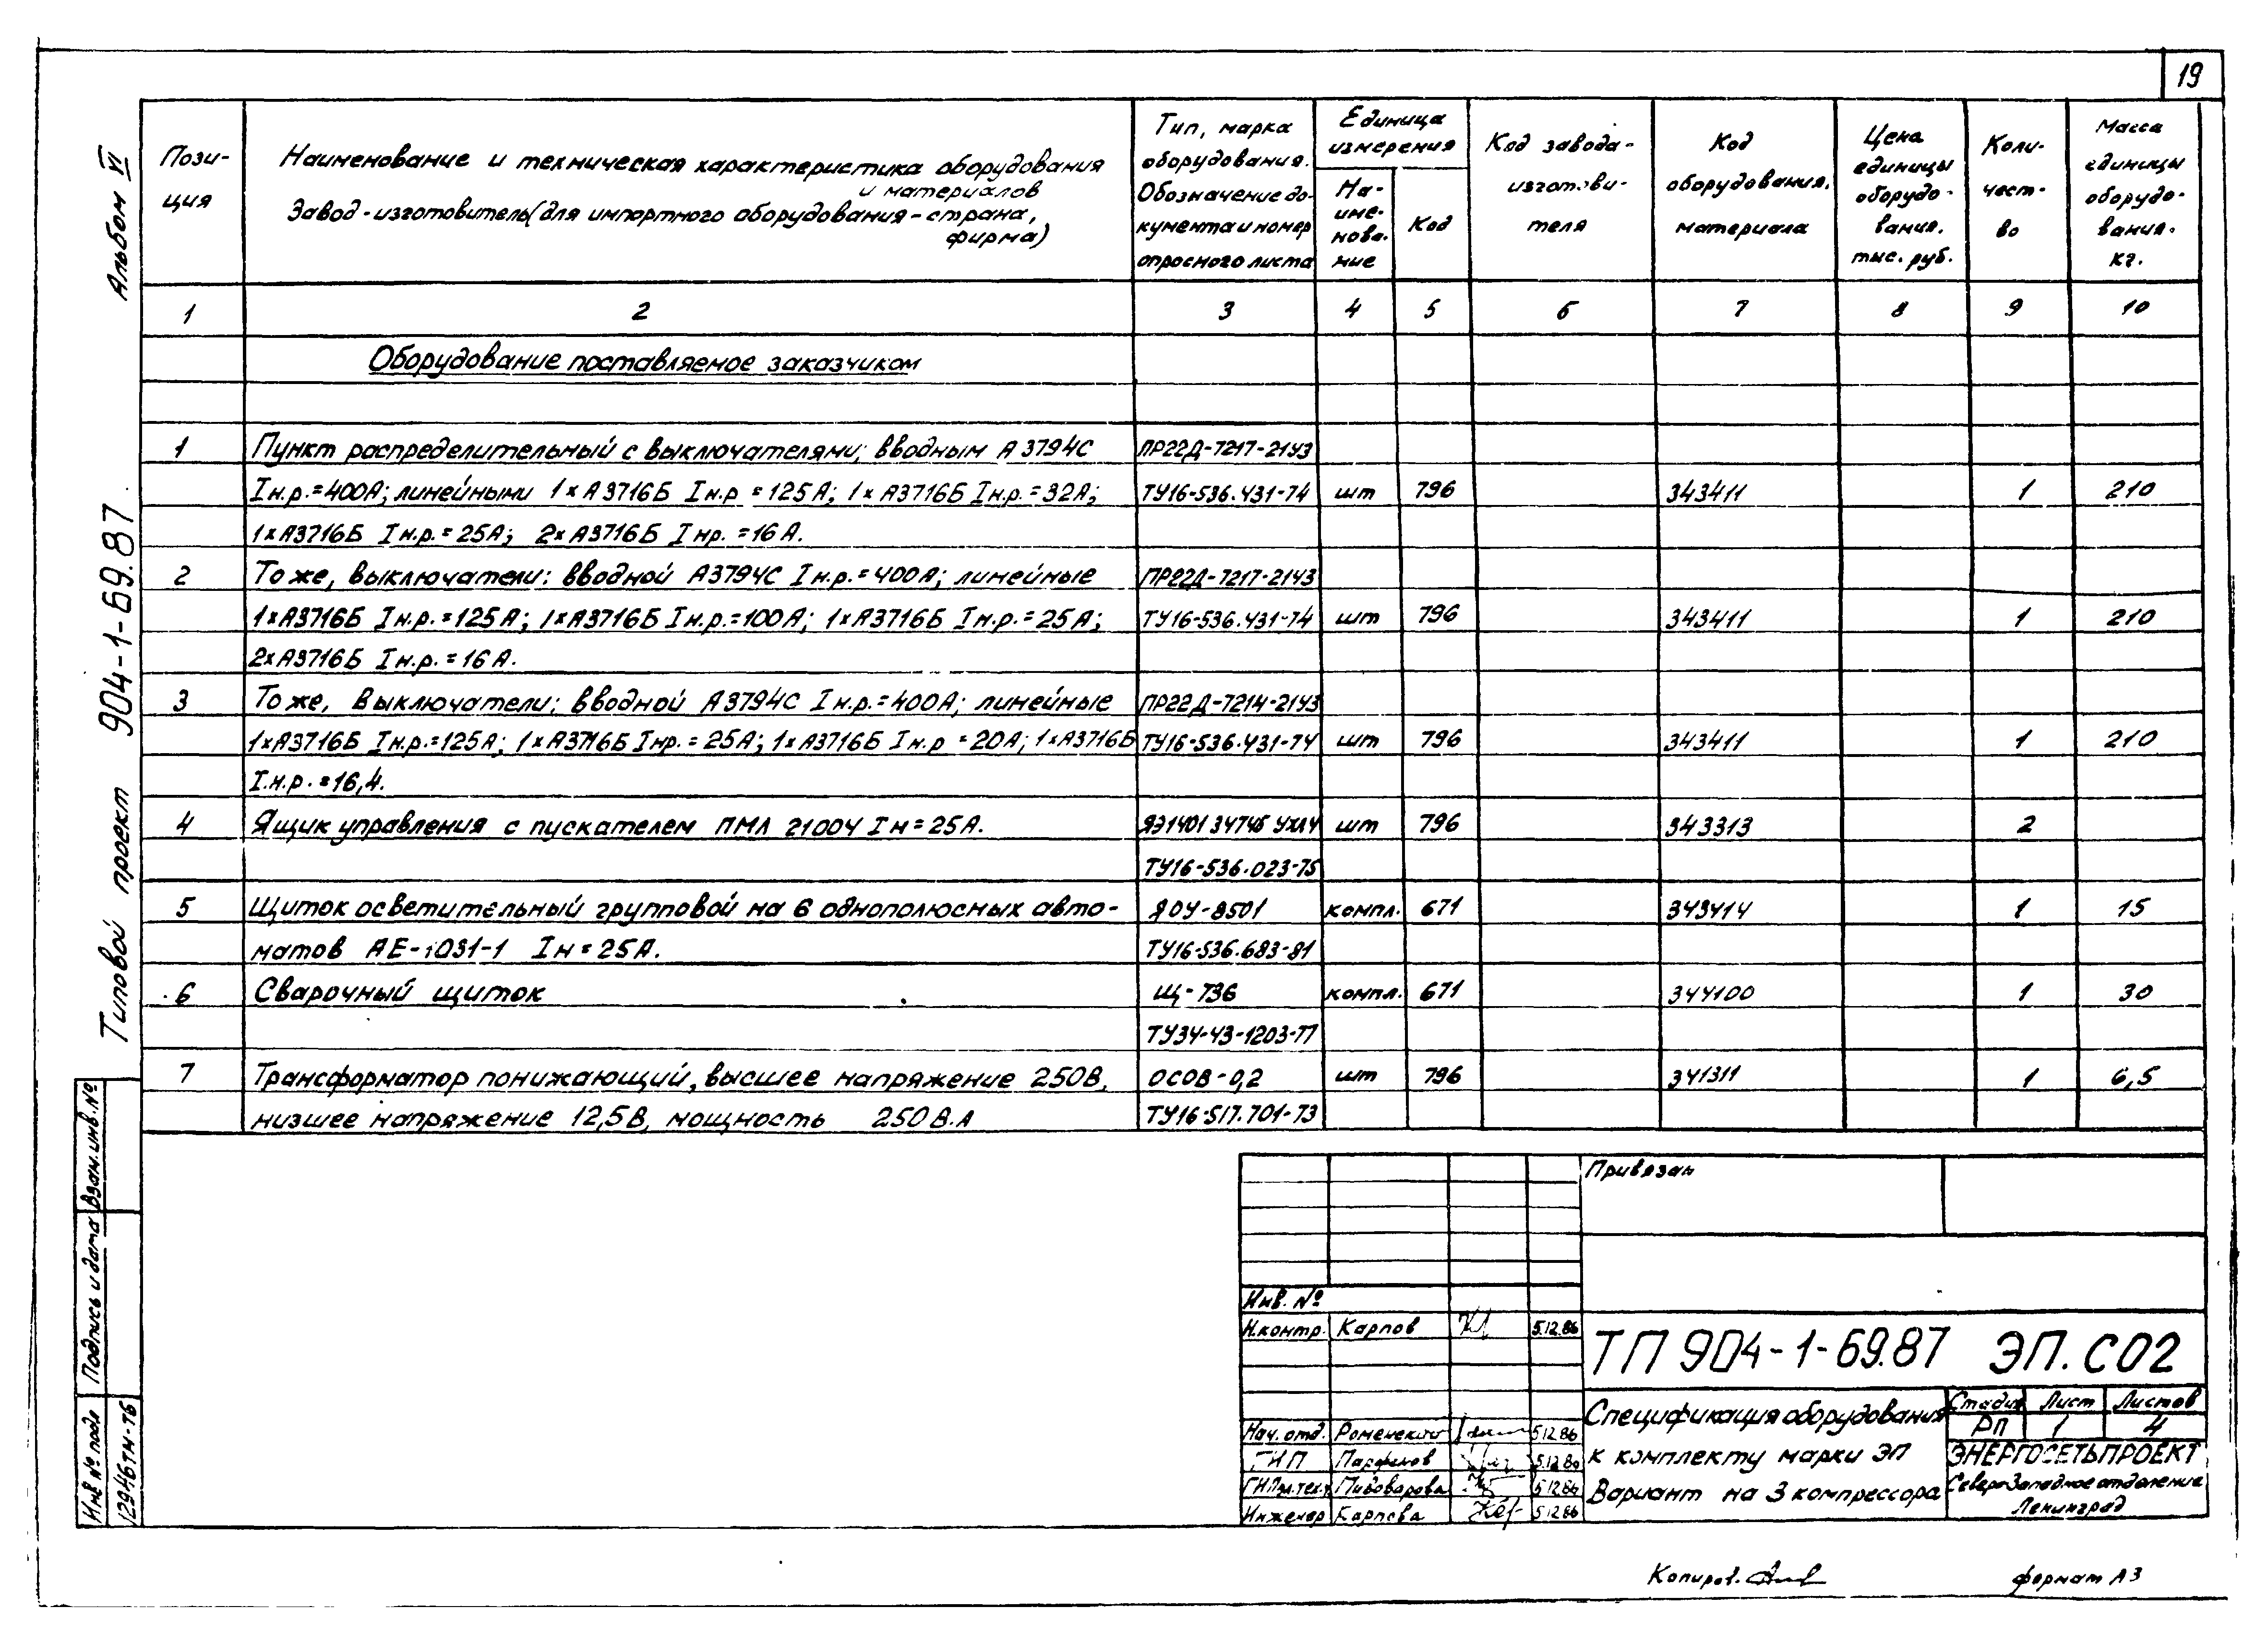 19
Альбом VI
Типовой проект 904-1-69.87
Пози-
ция
Наименование и техническая характеристика оборудования
и материалов
Завод-изготовитель (для импортного оборудования-страна,
фирма)
Тип, марка
оборудования.
Обозначение до-
кумента и номер
опросного листа
Единица
измерения
На-
име-
нова-
ние
Код
Код завода-
изготови-
теля
Код
оборудования,
материала
Цена
единицы
оборудо-
вания,
тыс. руб.
Коли-
чест-
во
Масса
единицы
оборудо-
вания,
кг.
1 2 3 4 5 6 7 8 9 10
Оборудование поставляемое заказчиком
1 Пункт распределительный с выключателями; вводным А3794С ПР22Д-7217-21У3
Iн.р.=400А; линейными 1×А3716Б Iн.р =125А; 1×А3716Б Iн.р.=32А; ТУ16-536.431-74 шт 796 343411 1 210
1×А3716Б Iн.р.=25А; 2×А3716Б Iнр. =16А.
2 То же, выключатели: вводной А3794С Iн.р.=400А; линейные ПР22Д-7217-21У3
1×А3716Б Iн.р.=125А; 1×А3716Б Iн.р.=100А; 1×А3716Б Iн.р.=25А; ТУ16-536.431-74 шт 796 343411 1 210
2×А3716Б Iн.р.=16А.
3 То же, выключатели; вводной А3794С Iн.р.=400А; линейные ПР22Д-7214-21У3
1×А3716Б Iн.р.=125А; 1×А3716Б Iнр.=25А; 1×А3716Б Iн.р =20А; 1×А3716Б ТУ16-536.431-74 шт 796 343411 1 210
I.н.р.=16,4.
4 Ящик управления с пускателем ПМЛ 21004 Iн=25А. ЯЭ1401 3474Б УХЛ4 шт 796 343313 2
ТУ16-536.023-75
5 Щиток осветительный групповой на 6 однополюсных авто- ЯОУ-8501 компл. 671 343414 1 15
матов АЕ-1031-1 Iн=25А. ТУ16-536.683-81
6 Сварочный щиток Щ-736 компл. 671 344100 1 30
ТУ34-43-1203-77
7 Трансформатор понижающий, высшее напряжение 250В, ОСОВ-0,2 шт 796 341311 1 6,5
низшее напряжение 12,5В, мощность 250В.А ТУ16-517.701-73
Привязан
Инв. №
Н.контр. Карпов 5.12.86
ТП 904-1-69.87 ЭП.СО2
Нач. отд. Роменский 5.12.86
ГИП Парфенов 5.12.86
ГИПэл.тех.ч. Пивоварова 5.12.86
Инженер Карпева 5.12.86
Спецификация оборудования
к комплекту марки ЭП
Вариант на 3 компрессора
Стадия Лист Листов
РП 1 4
ЭНЕРГОСЕТЬПРОЕКТ
Северо-Западное отделение
Ленинград
Взам.инв.№
Подпись и дата
Инв № подл
12946тм-т6
Копиров.
формат А3